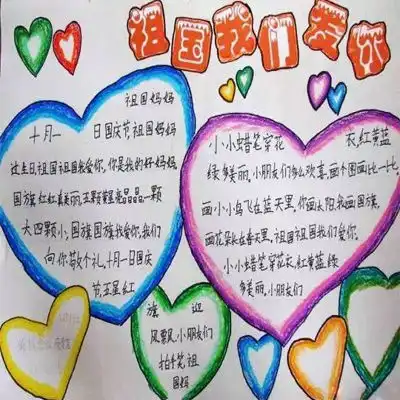 祖国我们爱你
祖国妈妈
十月一 日国庆节,祖国妈妈
过生日,祖国祖国我爱你,你是我的好妈妈。
国旗红红真美丽,五颗黄星亮晶晶,一颗
大四颗小,国旗国旗我爱你,我们
向你敬个礼。十月一日国庆
节,五星红
旗 迎
风飘,小朋友们
拍手笑,祖
国妈
小小蜡笔穿花 衣,红黄蓝
绿多美丽,小朋友们多么欢喜,画个图画比一比。
画小小鸟飞在蓝天里,你画太阳我画国旗,
画花朵长在春天里,祖国祖国我们爱你。
小小蜡笔穿花衣,红黄蓝绿
多美丽,小朋友们